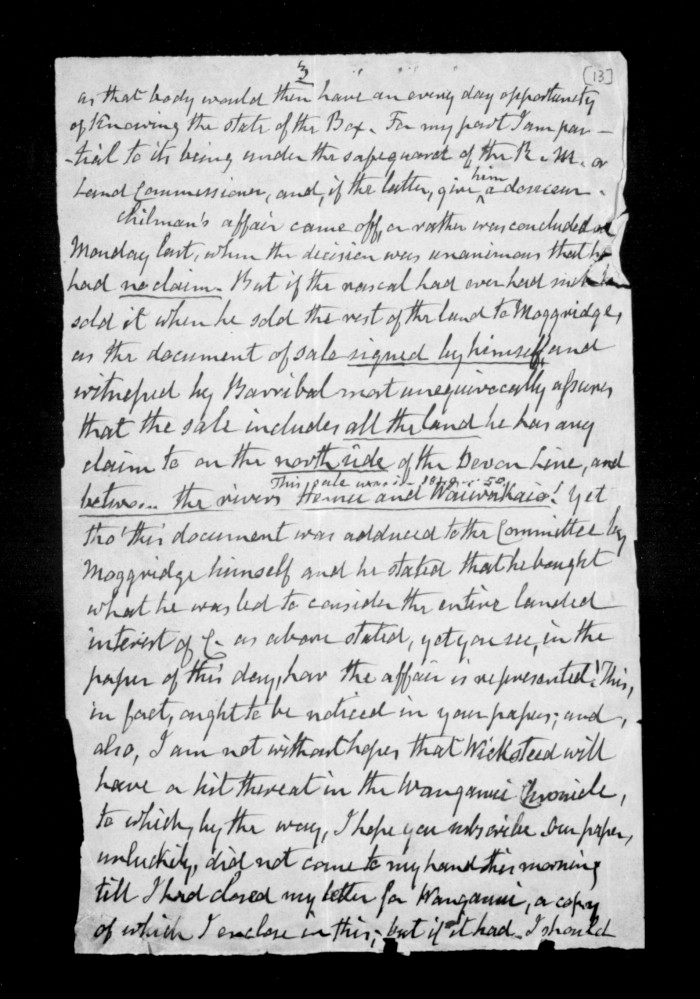 3
[13]
as that body would then have an every day opportunity
of knowing the state of the Box. For my part I am par-
-tial to its being under the safeguard of the R. M. or
Land Commissioner, and, if the latter, give him a douceur.
Chilman's affair came off, or rather was concluded on
Monday last, when the decision was unanimous that he
had no claim. But if the rascal had ever had such he
sold it when he sold the rest of the land to Moggridge,
as the document of sale signed by himself, and
witnessed by Barribal most unequivocally assures
that the sale includes all the land he has any
claim to on the north side of the Devon Line, and
This sale was in
between the rivers Henui and Waiwakaio! Yet
tho' this document was adduced to the Committee by
Moggridge himself and he stated that he bought
what he was led to consider the entire landed
interest of C. as above stated, yet you see, in the
paper of this day, how the affair is represented! This,
in fact, ought to be noticed in your papers; and,
also, I am not without hopes that Wicksteed will
have a hit thereat in the Wanganui Chronicle,
to which, by the way, I hope you subscribe. Our paper,
unluckily, did not come to my hand this morning
till I had closed my letter for Wanganui, a copy
of which I enclose in this; but if it had I should